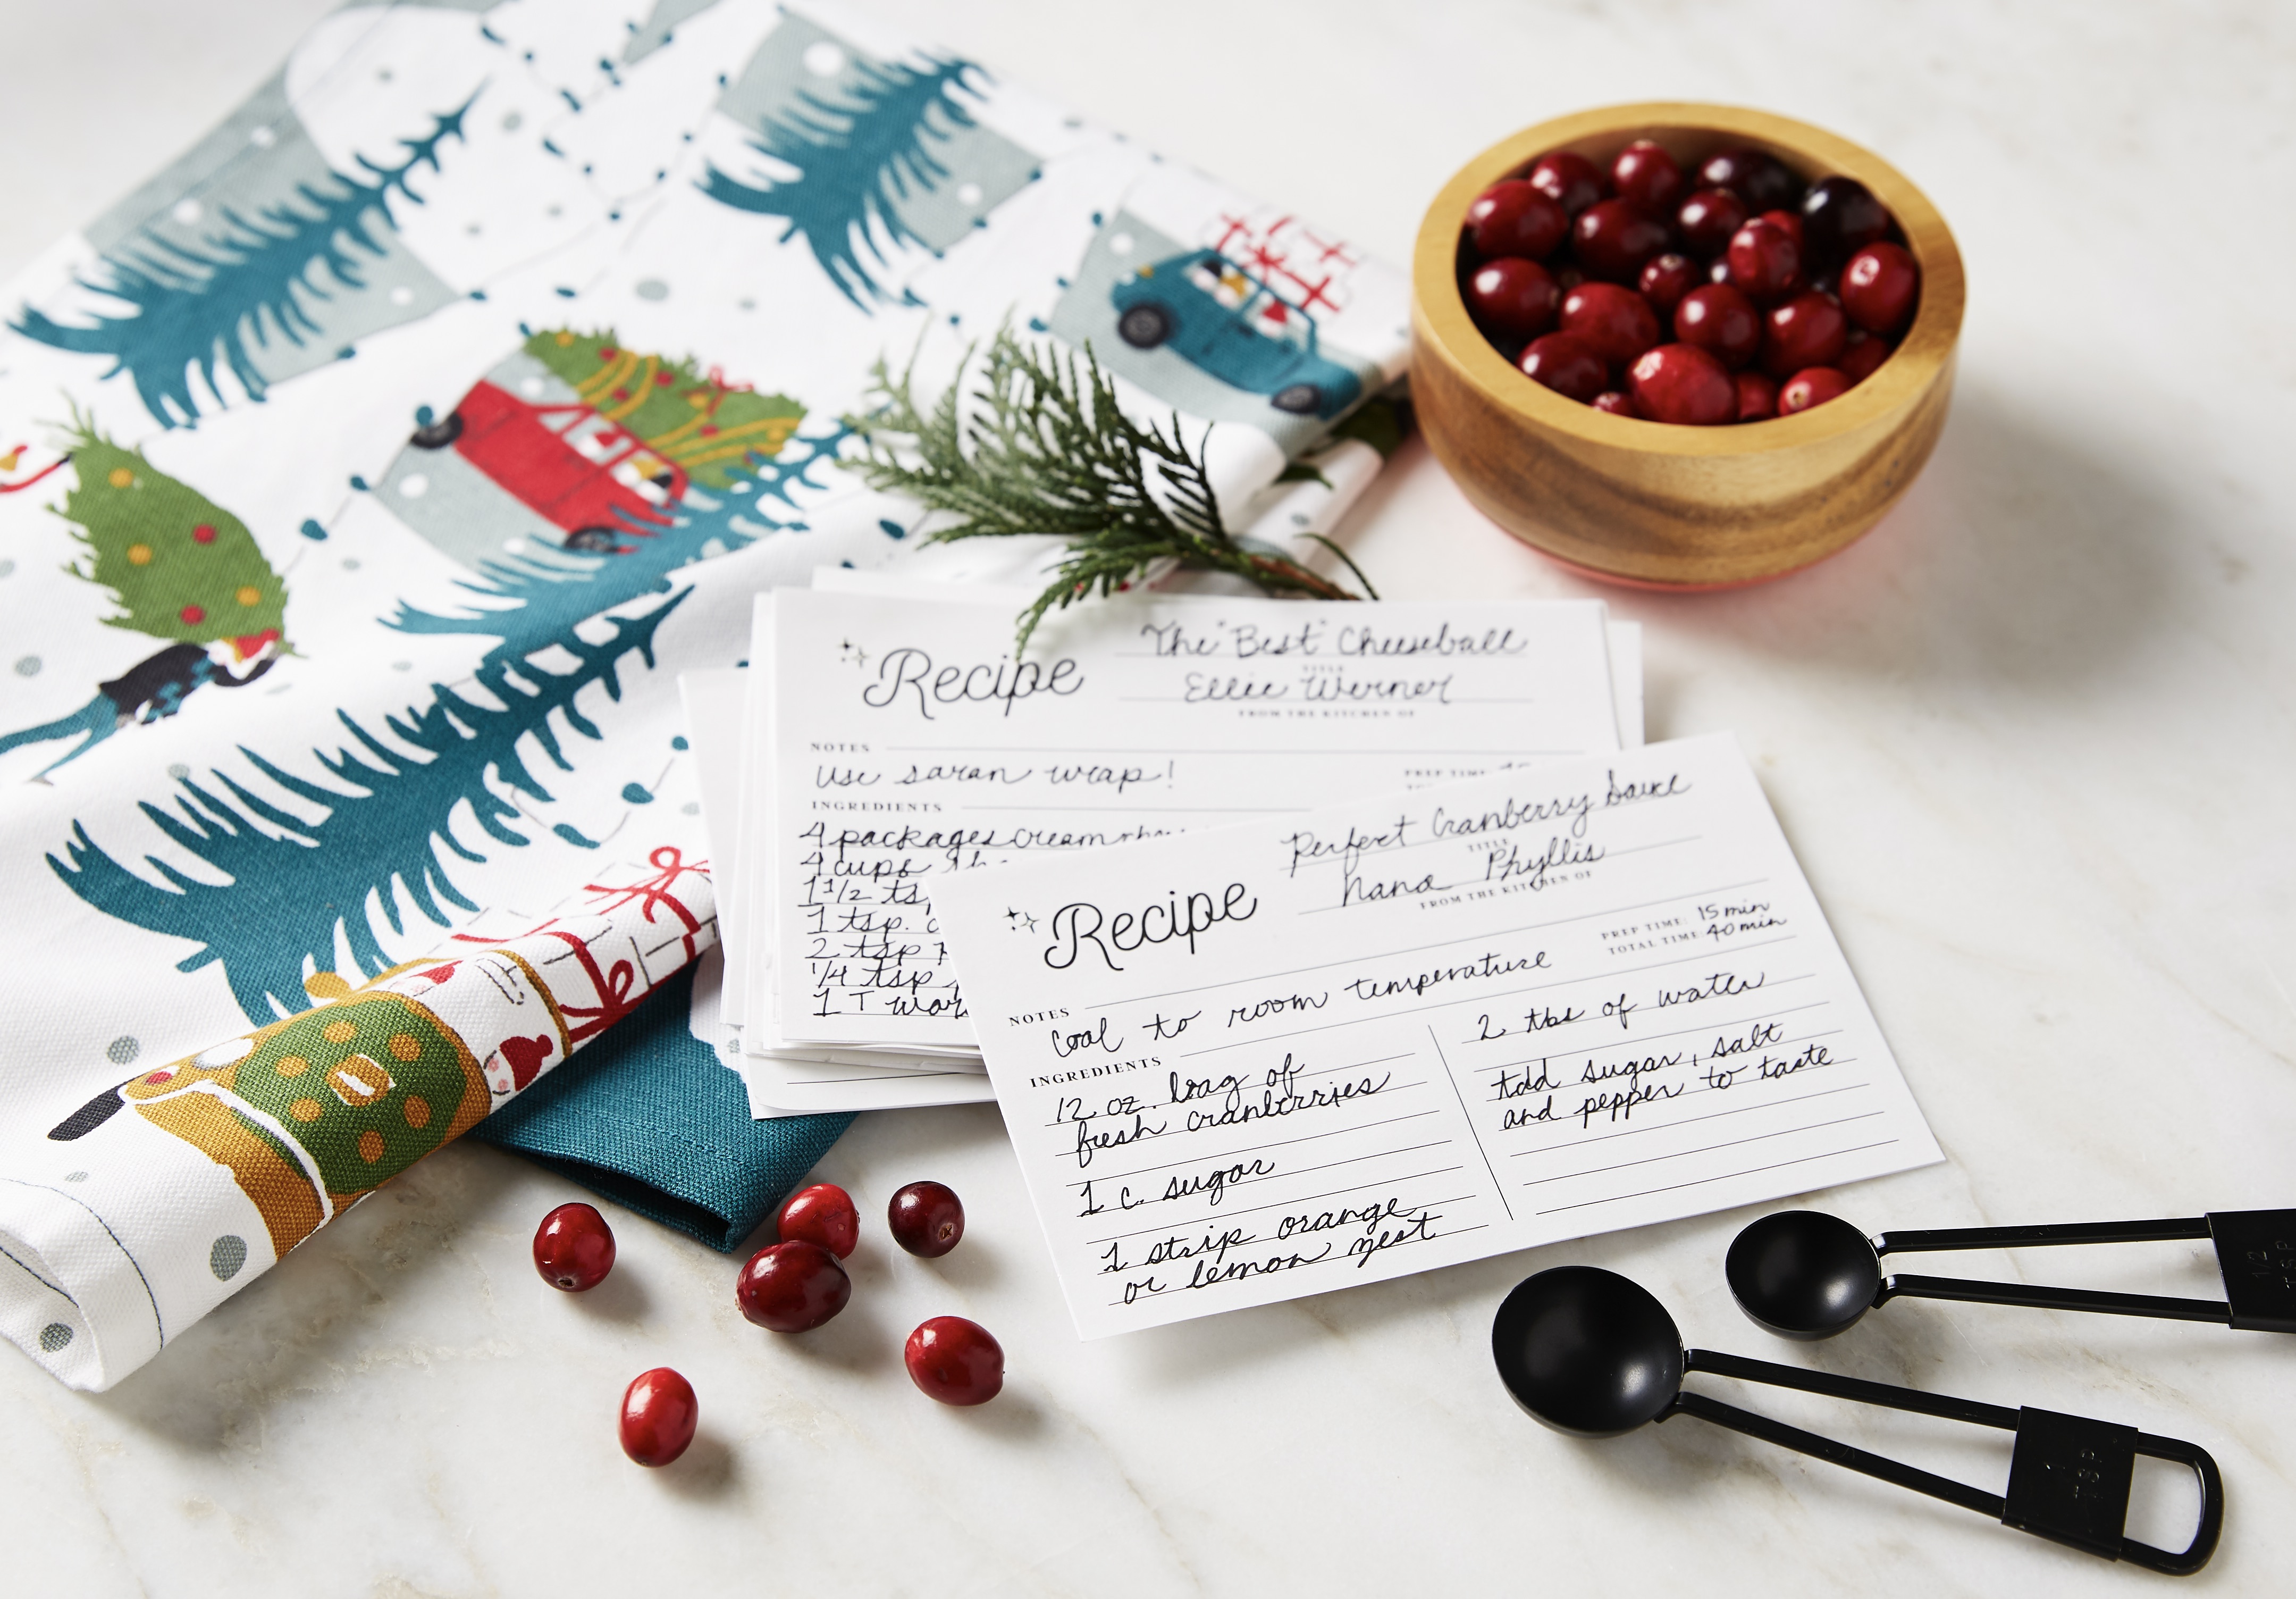 Recipe
The "Best" Cheeseball
TITLE
Ellie Werner
FROM THE KITCHEN OF
NOTES
use saran wrap!
PREP TIME:
INGREDIENTS
4 packages cream
4 cups
1 1/2 ts
1 tsp.
2 tsp
1/4 tsp
1 T
Recipe
Perfect Cranberry Sauce
TITLE
Nana Phyllis
FROM THE KITCHEN OF
PREP TIME: 15 min
TOTAL TIME: 40 min
NOTES
Cool to room temperature
INGREDIENTS
12 oz. bag of
fresh cranberries
1 c. sugar
1 strip orange
or lemon zest
2 tbs of water
Add sugar, salt
and pepper to taste
1/2
TSP
1
TSP